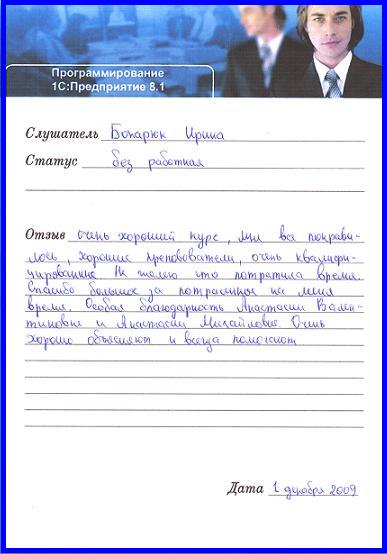 Программирование
1С:Предприятие 8.1
Слушатель Бокарюк Ирина
Статус без работная
Отзыв очень хороший курс, мне все понрави-
лось, хорошие преподователи, очень квалифи-
цированные. Не жалею что потратила время.
Спасибо большое за потраченное на меня
время. Особая благодарность Анастасии Вален-
тиновне и Анастасии Михайловне. Очень
хорошо объясняют и всегда помогают
Дата 1 декабря 2009